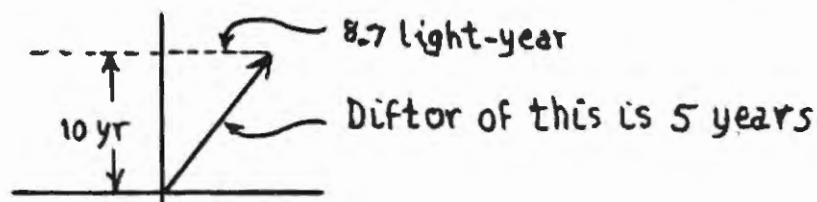 8.7 light-year
10 yr
Diftor of this is 5 years